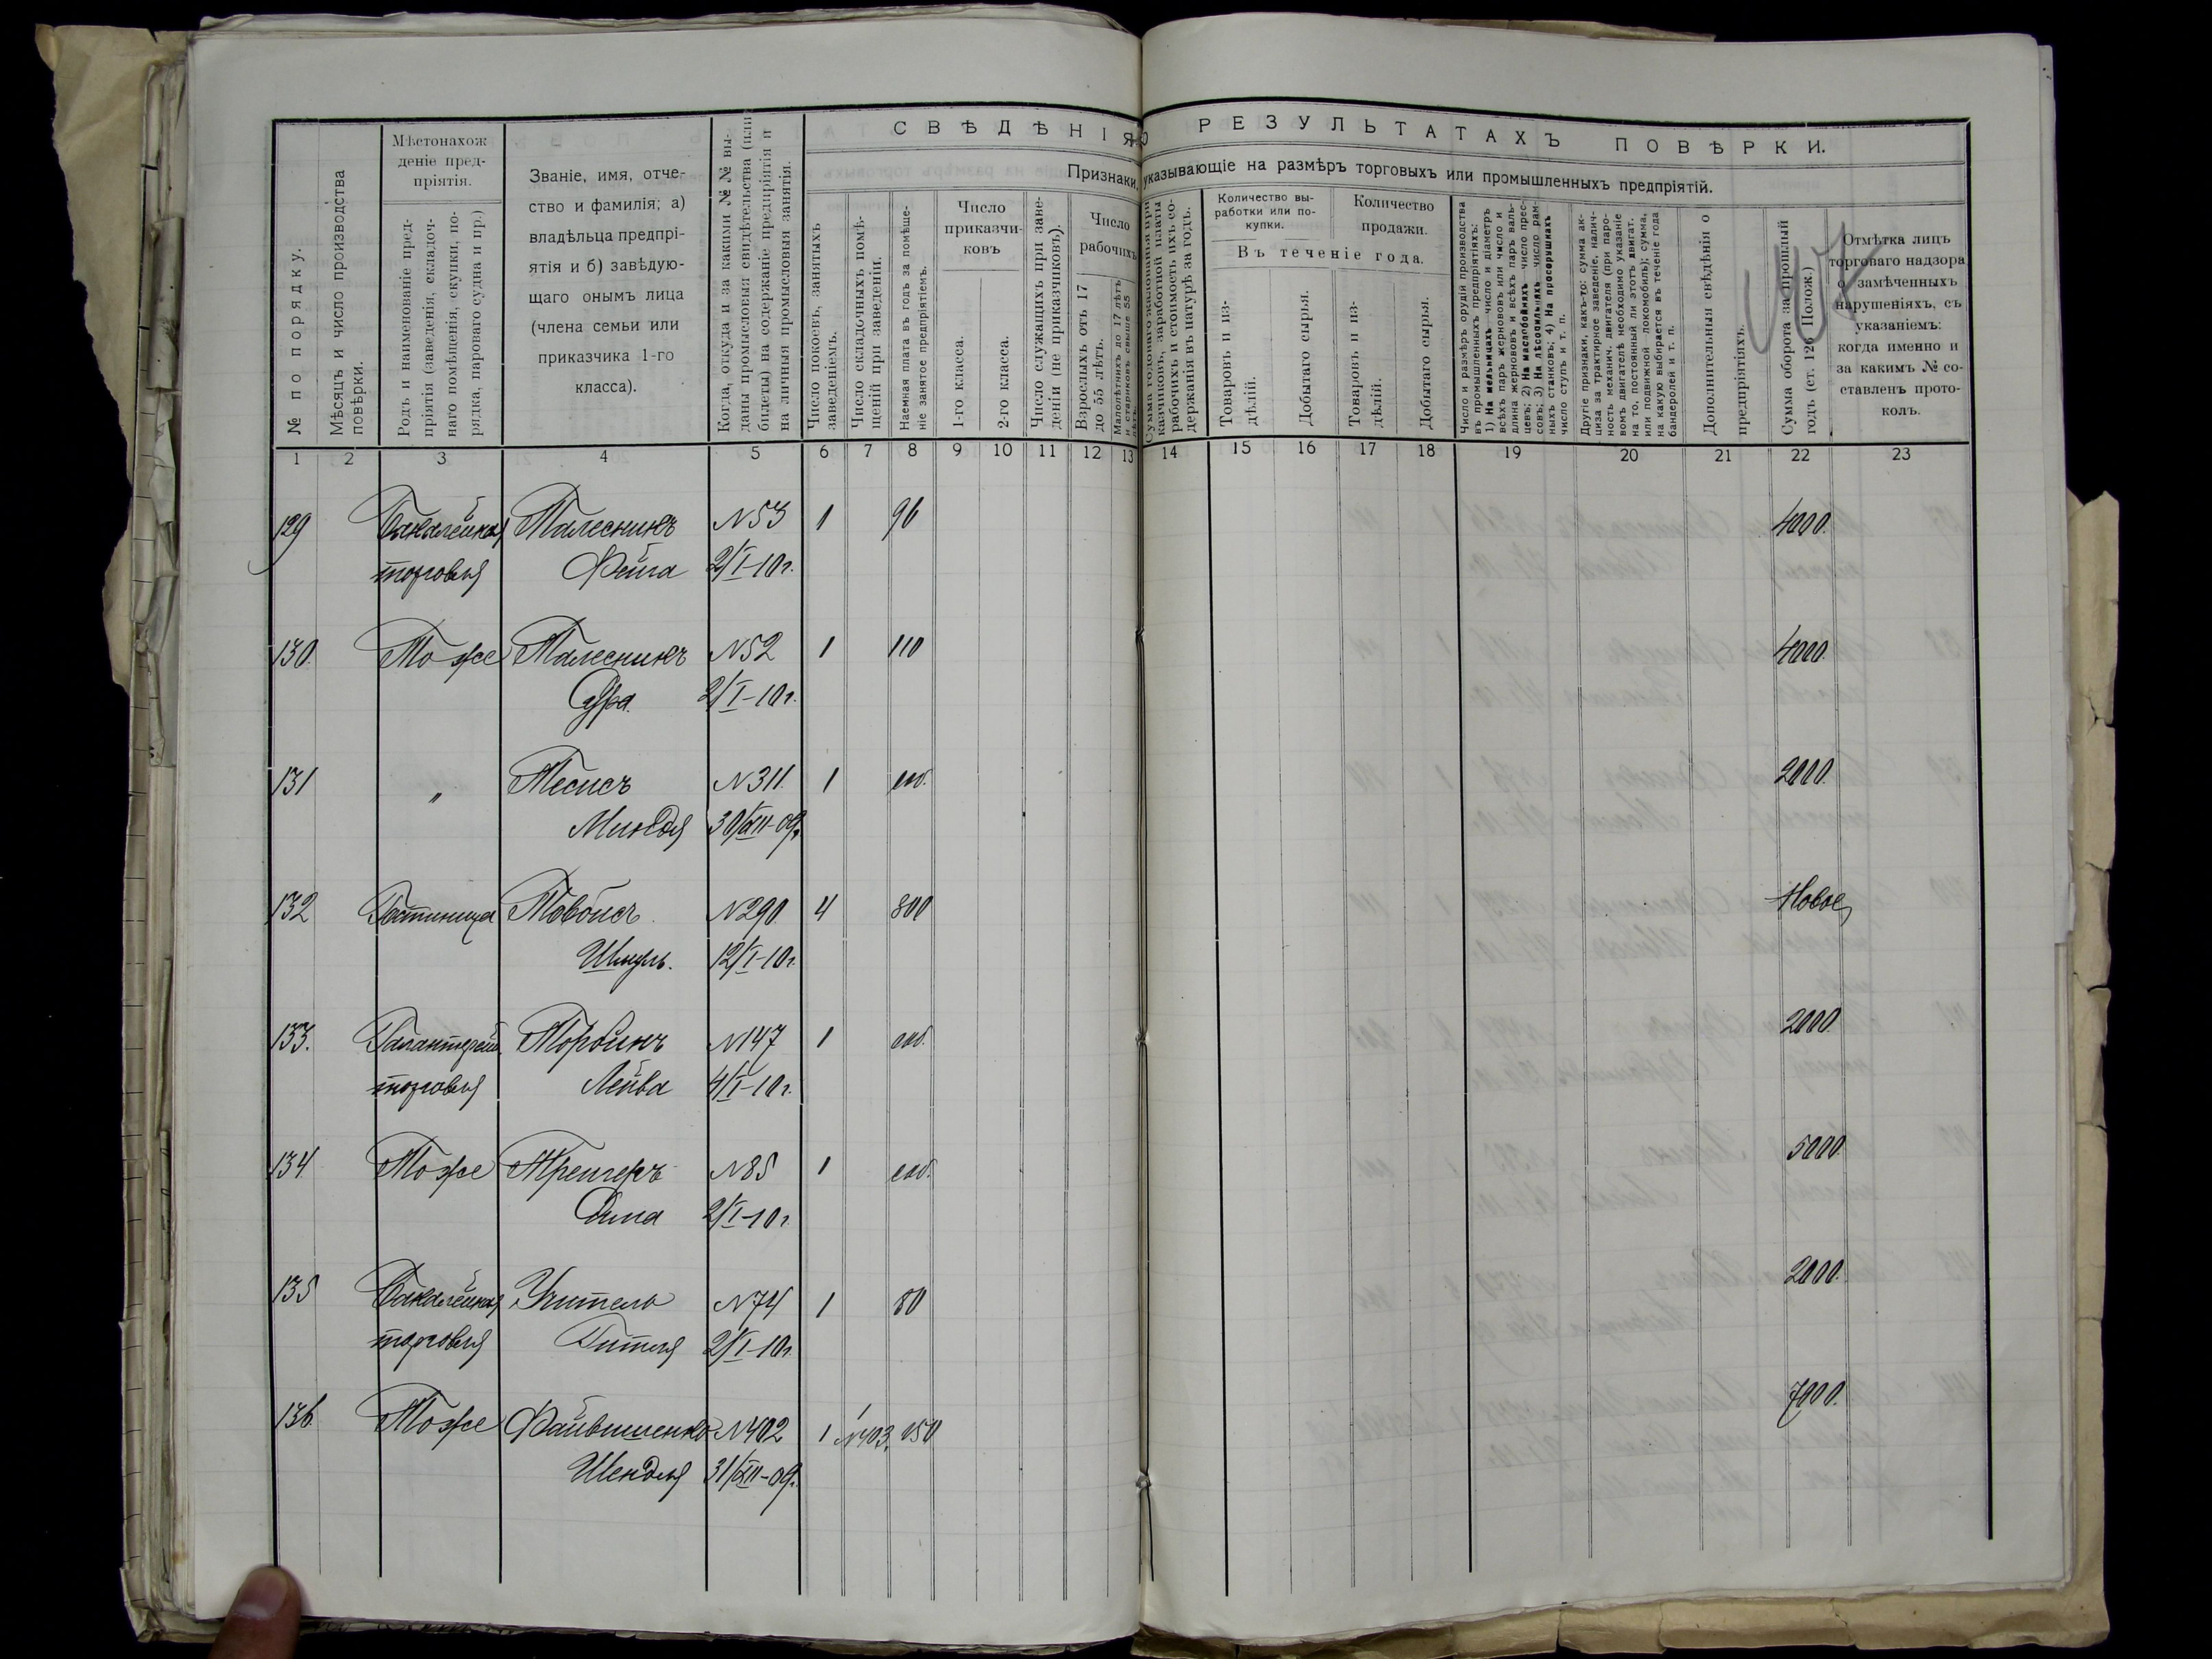 СВѢДѢНІЯ О РЕЗУЛЬТАТАХЪ ПОВѢРКИ.
Признаки, указывающіе на размѣръ торговыхъ или промышленныхъ предпріятій.
№ по порядку.
Мѣсяцъ и число производства
повѣрки.
Мѣстонахож
деніе пред-
пріятія.
Родъ и наименованіе пред-
пріятія (заведенія, складоч-
наго помѣщенія, скупки, по-
рядка, парового судна и пр.)
Званіе, имя, отче-
ство и фамилія; а)
владѣльца предпрі-
ятія и б) завѣдую-
щаго онымъ лица
(члена семьи или
приказчика 1-го
класса).
Когда, откуда и за какими №№ вы-
даны промысловыя свидѣтельства (или
билеты) на содержаніе предпріятія и
на личныя промысловыя занятія.
Число покоевъ, занятыхъ
заведеніемъ.
Число складочныхъ помѣ-
щеній при заведеніи.
Наемная плата въ годъ за помѣще-
ніе занятое предпріятіемъ.
Число
приказчи-
ковъ
1-го класса.
2-го класса.
Число служащихъ при заве-
деніи (не приказчиковъ).
Число
рабочихъ
Взрослыхъ отъ 17
до 55 лѣтъ.
Малолѣтнихъ до 17 лѣтъ
и стариковъ свыше 55
лѣтъ.
Сумма годового жалованья при
казчиковъ, заработной платы
рабочихъ и стоимость ихъ со-
держанія въ натурѣ за годъ.
Количество вы-
работки или по-
купки.
Количество
продажи.
Въ теченіе года.
Товаровъ и из-
дѣлій.
Добытаго сырья.
Товаровъ и из-
дѣлій.
Добытаго сырья.
Число и размѣръ орудій производства
въ промышленныхъ предпріятіяхъ:
1) На мельницахъ число и діаметръ
всѣхъ паръ жернововъ или число и
длина жернововъ и всѣхъ паръ валь-
цевъ; 2) На маслобойняхъ число прес-
совъ; 3) На лѣсопильняхъ число рам-
ныхъ станковъ; 4) На просорушкахъ
число ступъ и т. п.
Другіе признаки, какъ-то: сумма ак-
циза за трактирное заведеніе, налич-
ность механич. двигателя (при паро-
вомъ двигателѣ необходимо указаніе
на то, постоянный ли этотъ двигат.
или подвижной локомобиль); сумма,
на какую выбирается въ теченіе года
бандеролей и т. п.
Дополнительныя свѣдѣнія о
предпріятіяхъ.
Сумма оборота за прошлый
годъ (ст. 126 Полож.)
Отмѣтка лицъ
торговаго надзора
о замѣченныхъ
нарушеніяхъ, съ
указаніемъ:
когда именно и
за какимъ № со-
ставленъ прото-
колъ.
1 2 3 4 5 6 7 8 9 10 11 12 13 14 15 16 17 18 19 20 21 22 23
129 Бакалейная Талесникъ N 53 1 96 4000.
торговля Фейга 2/I-10г.
130. То же Талесникъ N 52 1 110 4000.
Сура. 2/I-10г.
131 " Тесисъ N 311. 1 соб. 2000.
Миндля 30/XII-09г.
132 Гостиница Товбисъ N 290 4 800 Новое
Шмуль. 12/I-10г.
133. Галантерейн. Торбинъ N 147 1 соб. 2000.
торговля Лейба 4/I-10г.
134. То же Трегеръ N 85 1 соб. 5000.
Дина 2/I-10г.
135 Бакалейная Учитель N 74 1 80 2000.
торговля Гитля 2/I-10г.
136. То же Файвишенко N 402 1 1 N 403. 150 7000.
Шендля 31/XII-09г.